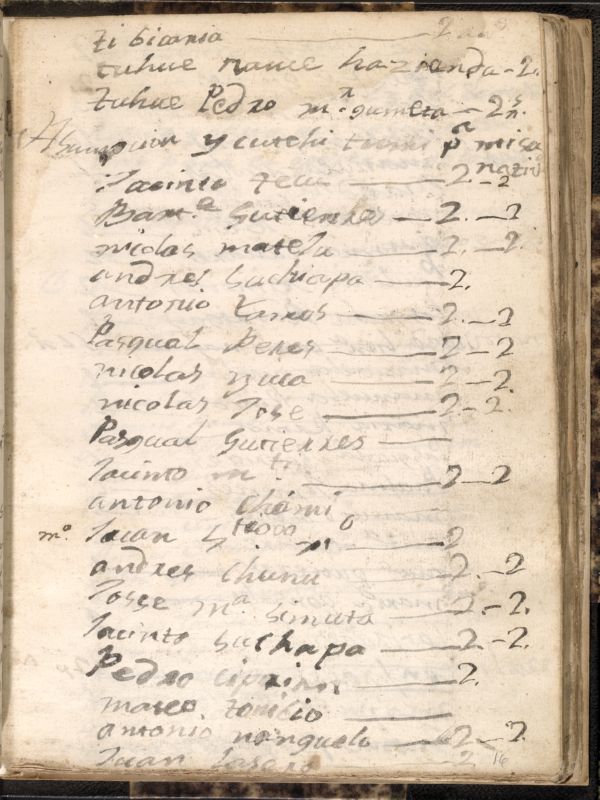 tibicania — 2
tuhue nauce hazienda - 2.
tuhue Pedro m.n gumeta — 2
y cutchi tumi pa misa
Jacinto teui — 2 - 2
Bart.e Gutierres — 2. - 2
nicolas matelu — 2. - 2.
andres suchiapa — 2.
antonio Ramos — 2. - 2
Pasqual Peres — 2 - 2
nicolas nuca — 2 - 2.
nicolas Jose — 2 - 2.
Pasqual Gutierres —
Jacinto m — 2 - 2
antonio chami —
mo. Juan — 2
andres chunu — 2. - 2
Josse ma. simuta — 2. - 2.
Jacinto suchapa — 2. - 2.
Pedro ciprian — 2.
mateo toribio —
antonio nanguelo — 2 - 2.
Juan 2 16